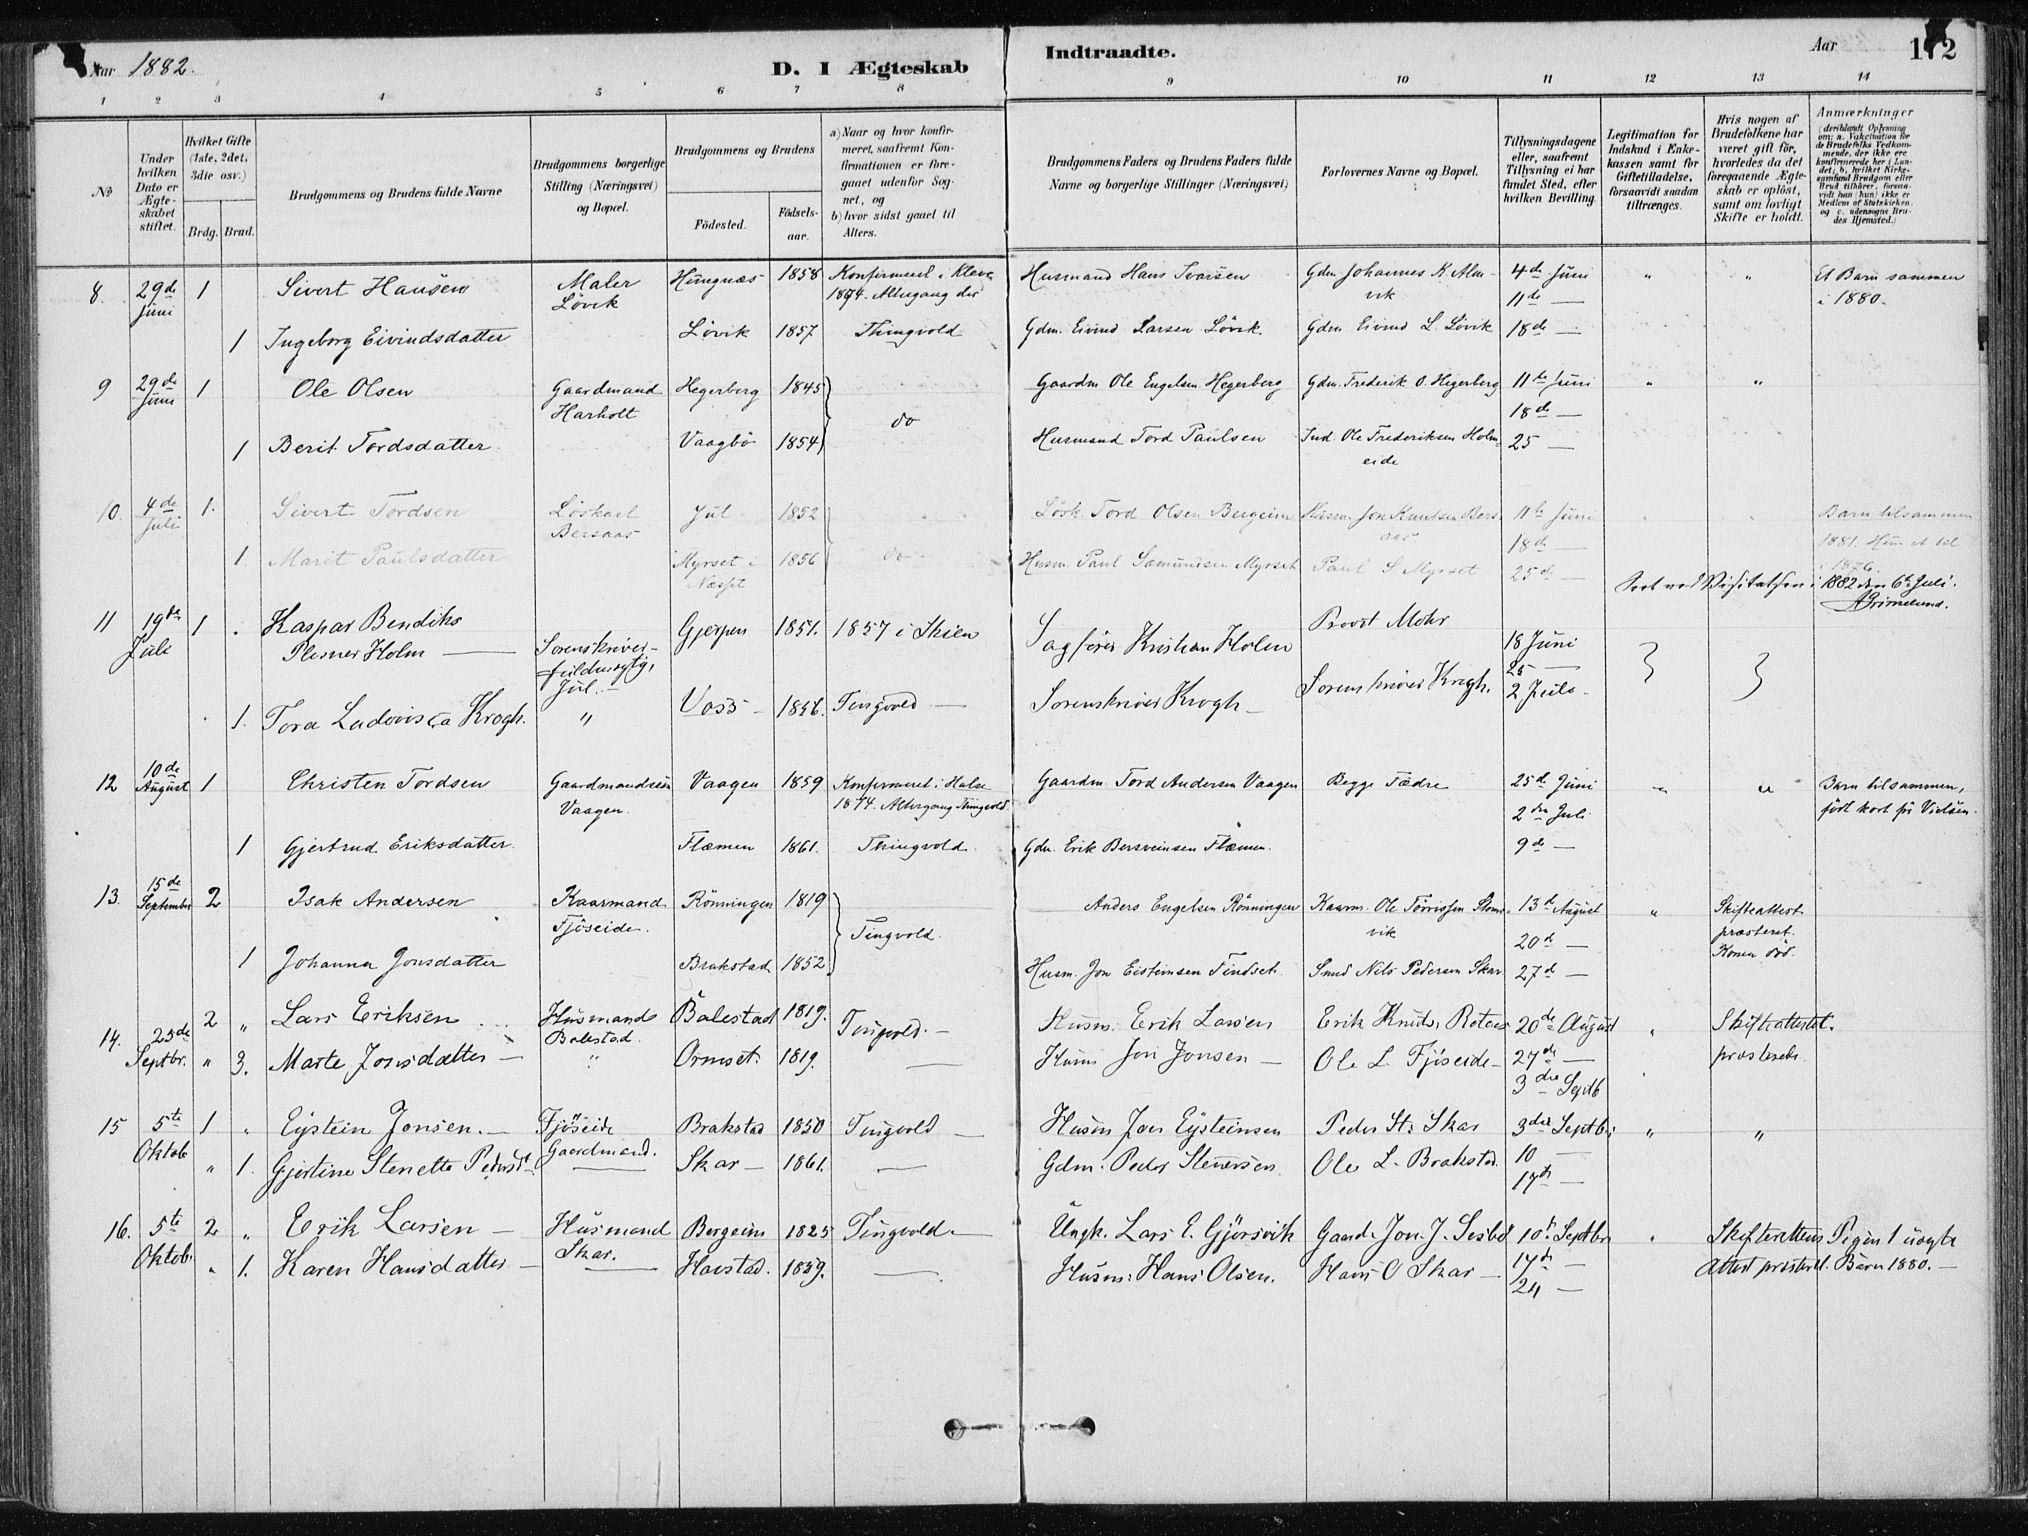 Aar 1882.
D. I Ægteskab
Indtraadte.
Aar
172
1 2 3 4 5 6 7 8 9 10 11 12 13 14
No
Under hvilken Dato er Ægteskabet stiftet.
Hvilket Gifte (1ste, 2det, 3die osv.)
Brdg. Brud.
Brudgommens og Brudens fulde Navne
Brudgommens borgerlige Stilling (Næringsvei) og Bopæl.
Brudgommens og Brudens
Fødested.
Fødselsaar.
a) Naar og hvor konfirmeret, saafremt Konfirmationen er foregaaet udenfor Sognet, og
b) hvor sidst gaaet til Alters.
Brudgommens Faders og Brudens Faders fulde Navne og borgerlige Stillinger (Næringsvei)
Forlovernes Navne og Bopæl.
Tillysningsdagene eller, saafremt Tillysning ei har fundet Sted, efter hvilken Bevilling.
Legitimation for Indskud i Enkekassen samt for Giftetilladelse, forsaavidt saadan tiltrænges.
Hvis nogen af Brudefolkene har været gift før, hvorledes da det foregaaende Ægteskab er opløst, samt om lovligt Skifte er holdt.
Anmærkninger (deriblandt Oplysning om: a. Vakcination for de Brudefolks Vedkommende, der ikke ere konfirmerede her i Landet; b. hvilket Kirkesamfund Brudgom eller Brud tilhører, forsaavidt han (hun) ikke er Medlem af Statskirken, og c. udensogns Brudes Hjemsted.)
8. 29de Juni 1 Sivert Hansen Maler Løvik Hungnæs 1858 Konfirmeret i 1874. Altergang der Husmand Hans Ivarsen Gdm Johannes K. Almvik 4de Juni " " Et Barn sammen
11te — i 1880.
1 Ingeborg Eivindsdatter Løvik 1857 Thingvold Gdm. Eivind Larsen Løvik Gdm Eivind L. Løvik 18de —
9 29de Juni 1 Ole Olsen Gaardmand Harholt Hegerberg 1845 do Gaardm Ole Engelsen Hegerberg Gdm. Frederik O. Hegerberg 11te Juni " "
18de —
1 Berit Tordsdatter Vaagbø 1854 Husmand Tord Paulsen Ind. Ole Frederiksen Holmeide 25 —
10 4de Juli 1. Sivert Tordsen Løskarl Bersaas Jul 1852 do Løsk. Tord Olsen Bergeim Husm. Jon Knutsen Bersaas 11te Juni " " Barn tilsammen
18de — 1881. Hun et til
1. Marit Paulsdatter Myrset i Nesset 1856 Husm. Paul Samundsen Myrset Paul S Myrset 25de — i 1876.
Seet ved Visitatsen i 1882 den 6te Juli.
AGrimelund.
11 19de Juli 1 . Kaspar Bendiks Plesner Holm — Sorenskriverfuldmegtig, Jul. — Gjerpen 1851. 1857 i Skien Sagfører Kristian Holm Provst Mohr 18 Juni
25 —
1. Tora Ladovisca Krogh. " Voss — 1856. Tingvold — Sorenskriver Krogh — Sorenskriver Krogh. 2 Juli —
12 10de August 1 Christen Tordsen Gaardmandssøn Vaagen Vaagen 1859 Konfirmeret i Halse 1874. Altergang Thingvold Gaardm. Tord Andersen Vaagen Begge Fædre 25de Juni " " Barn tilsammen,
2den Juli født kort før Vielsen.
1 Gjertrud Eriksdatter Flæmen 1861. Thingvold Gdm. Erik Bersveinsen Flæmen. 9de —
13. 15de September 2 Isak Andersen Kaarmand Fjøseide. Rønningen 1819 Tingvold. Anders Engelsen Rønningen Kaarm. Ole Tørrissen Stomsvik 13de August " Skifteattest
20de — præsteret.
1 Johanna Jonsdatter Brakstad 1852 Husm. Jon Eisteinsen Findset. Smed Nils Pedersen Skar 27de — Konen død.
14. 25de Septbr. 2 " Lars Eriksen Husmand Balestad. Balestad 1819. Tingvold. — Husm. Erik Larsen Erik Knuds. Rotaas 20de August " Skifteattestet.
" 3. Marte Jonsdatter — " Ormset. 1819. — Husm Jon Jonsen — Ole L. Fjøseide — 27de — præsteret.
3die Septb
15 5te Oktob 1 " Eystein Jonsen. — Fjøseide Gaardmand. Brakstad 1850 Tingvold — Husm Jon Eysteinsen Peder St: Skar 3die Septbr " "
" 1. Gjertine Stenette Pedersd. — Skar — 1861. — Gdm. Peder Stenersen. Ole L. Brakstad. 10 —
17de —
16. 5te Oktob. 2 " Erik Larsen — Husmand Skar. Bergeim 1825 Tingvold. — Ungk. Lars E. Gjørsvik Gaard. Jon. J. Sesbø 10de Septbr " Skifterettens Pigen 1 uægte
" 1. Karen Hansdatter — Havstad. 1839. — Husm: Hans Olsen. Hans O Skar — 17de — Attest præsteret. Barn 1880. —
24 —